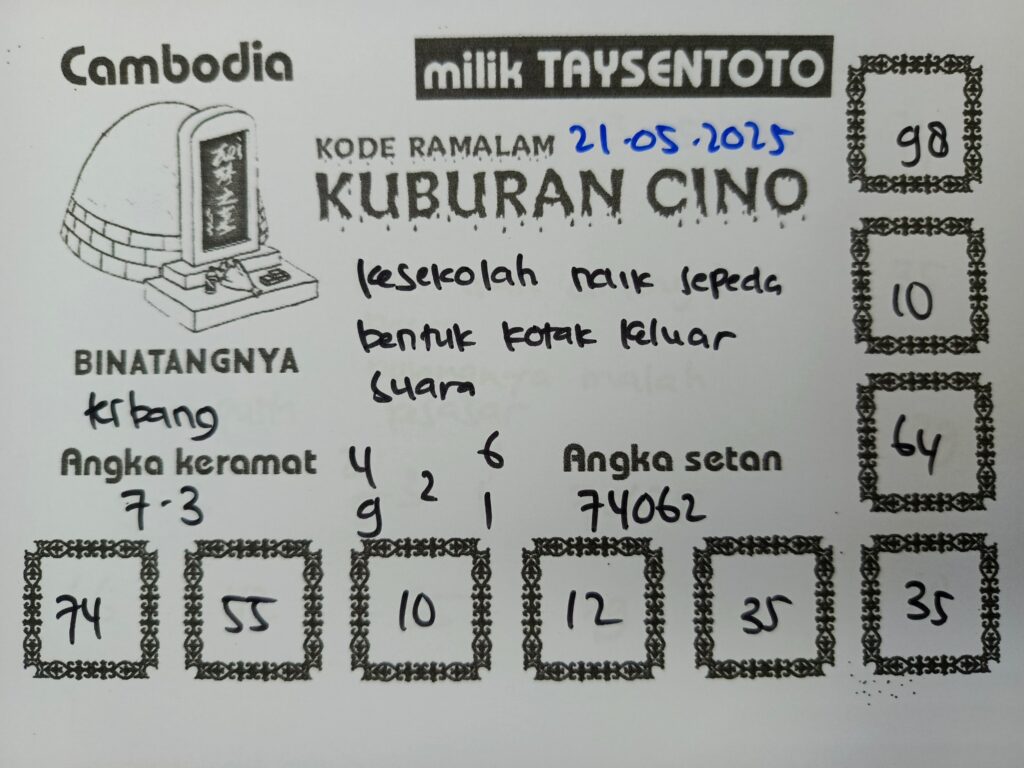 Cambodia
milik TAYSENTOTO
KODE RAMALAM 21.05.2025
KUBURAN CINO
kesekolah naik sepeda
bentuk kotak keluar
suara
BINATANGNYA
krbang
Angka keramat
7-3
4 6
2
9 1
Angka setan
74062
98
10
64
74 55 10 12 35 35